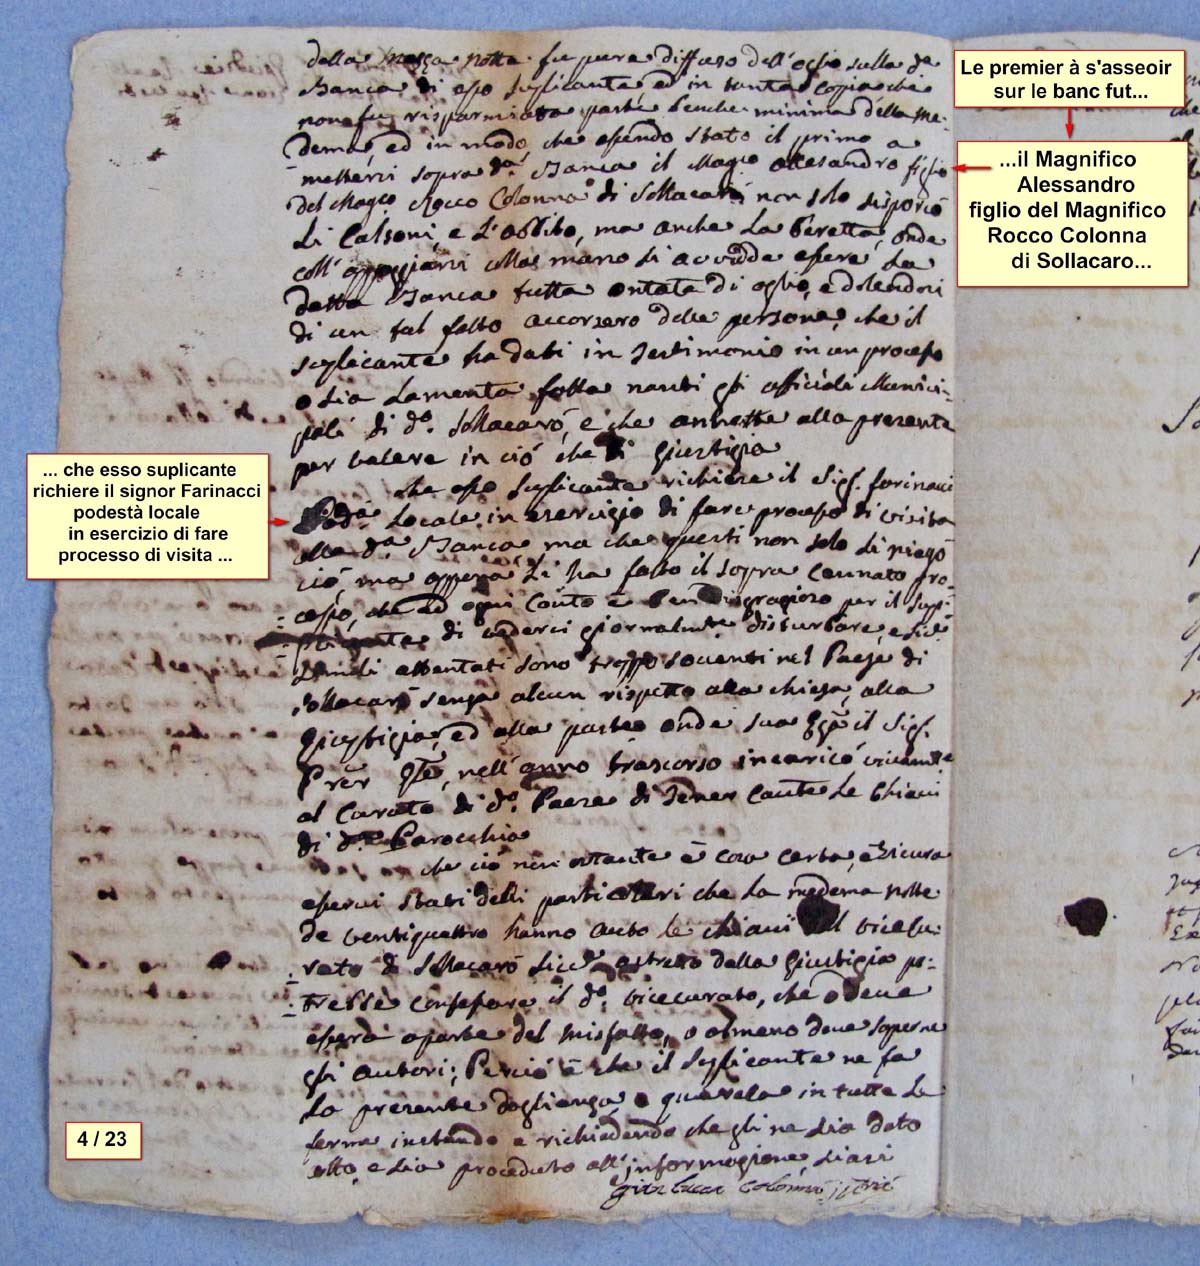 della mezza notte fu pure diffuso dell'oglio sulla da
Banca di eso suplicante ed in tanta copia che
non fu risparmiata parte benche minima della me-
dema, ed in modo, che esendo stato il primo a
mettersi sopra da Banca il Magco Allesandro figlio
del Magco Rocco Colonna di Sollacaró non solo si sporcó
Li Calsoni, e L'abbito, ma anche La beretta, onde
coll'appogiarsi colla mano si avvidde esere La
detta Banca tutta ontata di oglio, e dolendosi
di un tal fatto accorsero delle persone, che il
suplicante ha dati in Testimonio in un proceso
o sia Lamenta fatta nanti gli officiali Munici-
pali di do. Sollacaró, e che annette alla presente
per valere in ció che di Giustizia
che eso suplicante richiere il Sigr. farinacci
Podtà Locale in esercizio di fare proceso di visita
alla da. Banca, ma che questi non solo si niegó
ció, ma appena Li ha fatto il sopra cennato pro-
ceso, che ad ogni conto è ben disgrazioso per il supl-
di vedersi giornalmte disturbare, e
simili attentati sono troppo soventi nel Paese di
Sollacaró senza alcun rispetto alla chiesa, alla
Giustizia, ed alla parte onde sua il Sigr.
nell'anno trascorso incaricó vivamte
al Curato di do. Paese di Tener caute Le Chiavi
di da Parochia
che ció non ostante è cosa certa, e sicura
eservi stati delli particolari che La medema notte
de ventiquattro hanno auto le chiavi dal vicecu-
rato di Sollacaró astretto dalla Giustizia po-
trebbe confesare il do. vicecurato, che o deve
esere a parte del misfatto, o almeno deve saperne
gli autori; Perció è che il suplicante ne fa
La presente doglianza, e querela in tutta La
forma instando e richiedendo che gli ne sia dato
atto, e sia proceduto all'informazione,
Colonna
Le premier à s'asseoir
sur le banc fut...
...il Magnifico
Alessandro
figlio del Magnifico
Rocco Colonna
di Sollacaro...
... che esso suplicante
richiere il signor Farinacci
podestà locale
in esercizio di fare
processo di visita ...
4 / 23